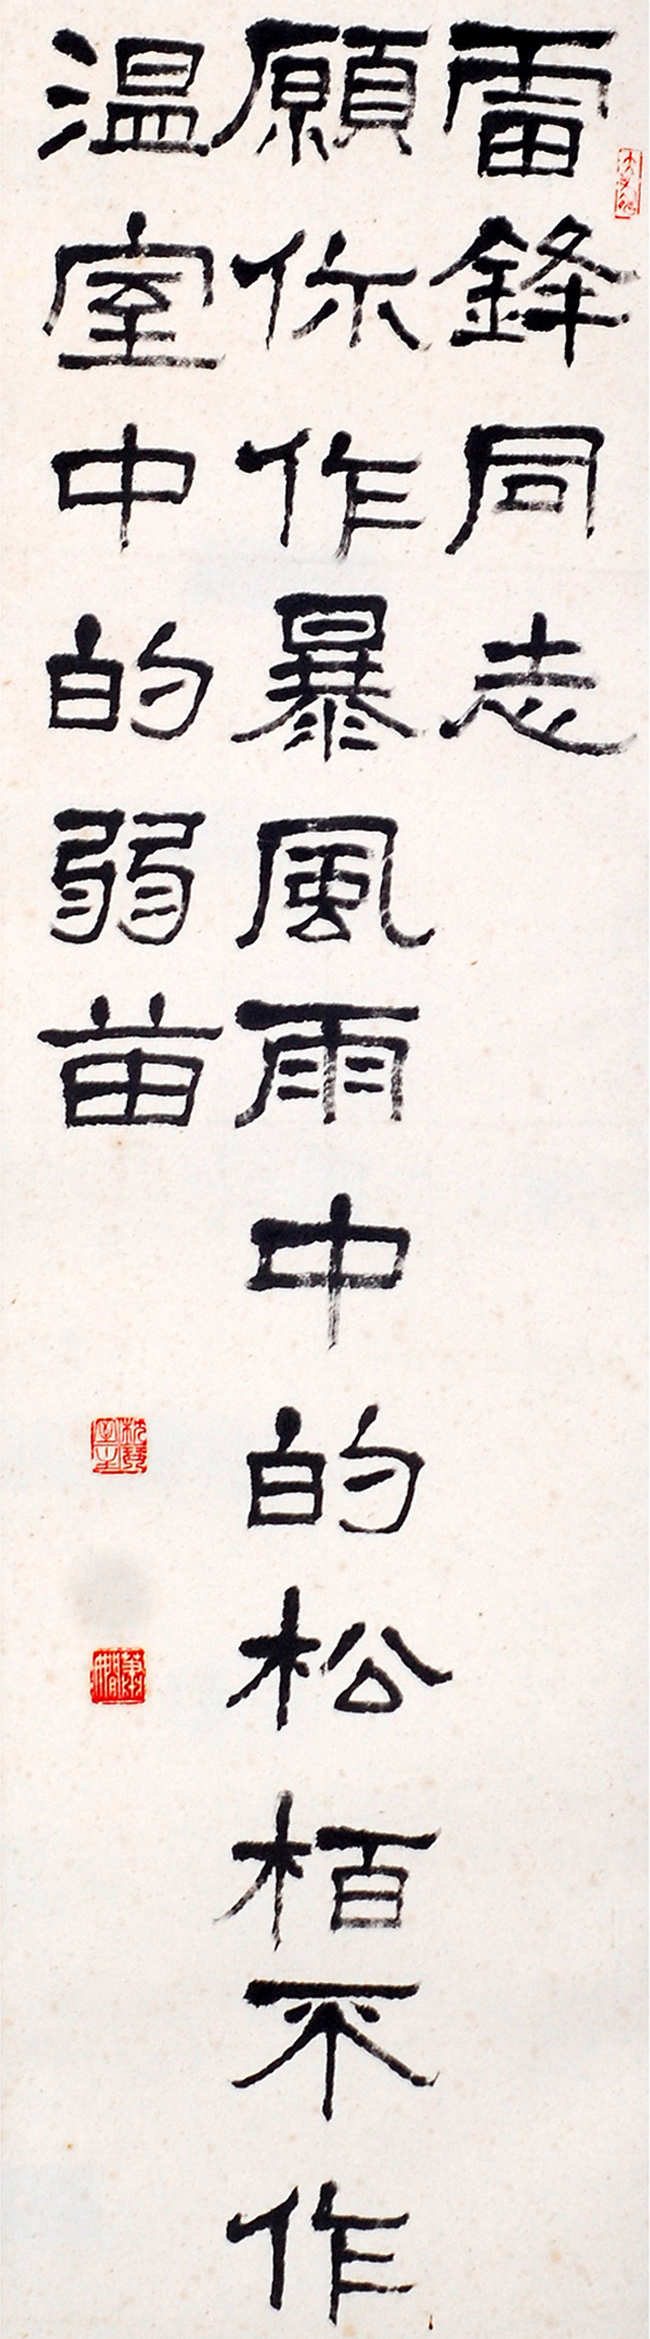 雷鋒同志
願你作暴風雨中的松栢不作
温室中的弱苗